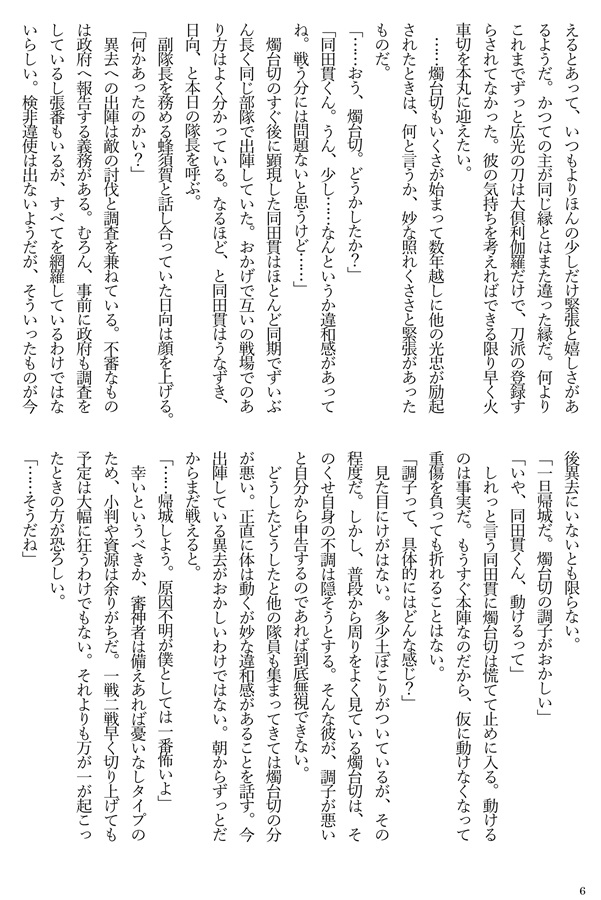 えるとあって、いつもよりほんの少しだけ緊張と嬉しさがあ
るようだ。かつての主が同じ縁とはまた違った縁だ。何より
これまでずっと広光の刀は大倶利伽羅だけで、刀派の登録す
らされてなかった。彼の気持ちを考えればできる限り早く火
車切を本丸に迎えたい。
……燭台切もいくさが始まって数年越しに他の光忠が励起
されたときは、何と言うか、妙な照れくささと緊張があった
ものだ。
「……おう、燭台切。どうかしたか？」
「同田貫くん。うん、少し……なんというか違和感があって
ね。戦う分には問題ないと思うけど……」
燭台切のすぐ後に顕現した同田貫はほとんど同期でずいぶ
ん長く同じ部隊で出陣していた。おかげで互いの戦場でのあ
り方はよく分かっている。なるほど、と同田貫はうなずき、
日向、と本日の隊長を呼ぶ。
副隊長を務める蜂須賀と話し合っていた日向は顔を上げる。
「何かあったのかい？」
異去への出陣は敵の討伐と調査を兼ねている。不審なもの
は政府へ報告する義務がある。むろん、事前に政府も調査を
しているし張番もいるが、すべてを網羅しているわけではな
いらしい。検非違使は出ないようだが、そういったものが今
後異去にいないとも限らない。
「一旦帰城だ。燭台切の調子がおかしい」
「いや、同田貫くん、動けるって」
しれっと言う同田貫に燭台切は慌てて止めに入る。動ける
のは事実だ。もうすぐ本陣なのだから、仮に動けなくなって
重傷を負っても折れることはない。
「調子って、具体的にはどんな感じ？」
見た目にけがはない。多少土ぼこりがついているが、その
程度だ。しかし、普段から周りをよく見ている燭台切は、そ
のくせ自身の不調は隠そうとする。そんな彼が、調子が悪い
と自分から申告するのであれば到底無視できない。
どうしたどうしたと他の隊員も集まってきては燭台切の分
が悪い。正直に体は動くが妙な違和感があることを話す。今
出陣している異去がおかしいわけではない。朝からずっとだ
からまだ戦えると。
「……帰城しよう。原因不明が僕としては一番怖いよ」
幸いというべきか、審神者は備えあれば憂いなしタイプの
ため、小判や資源は余りがちだ。一戦二戦早く切り上げても
予定は大幅に狂うわけでもない。それよりも万が一が起こっ
たときの方が恐ろしい。
「……そうだね」
6